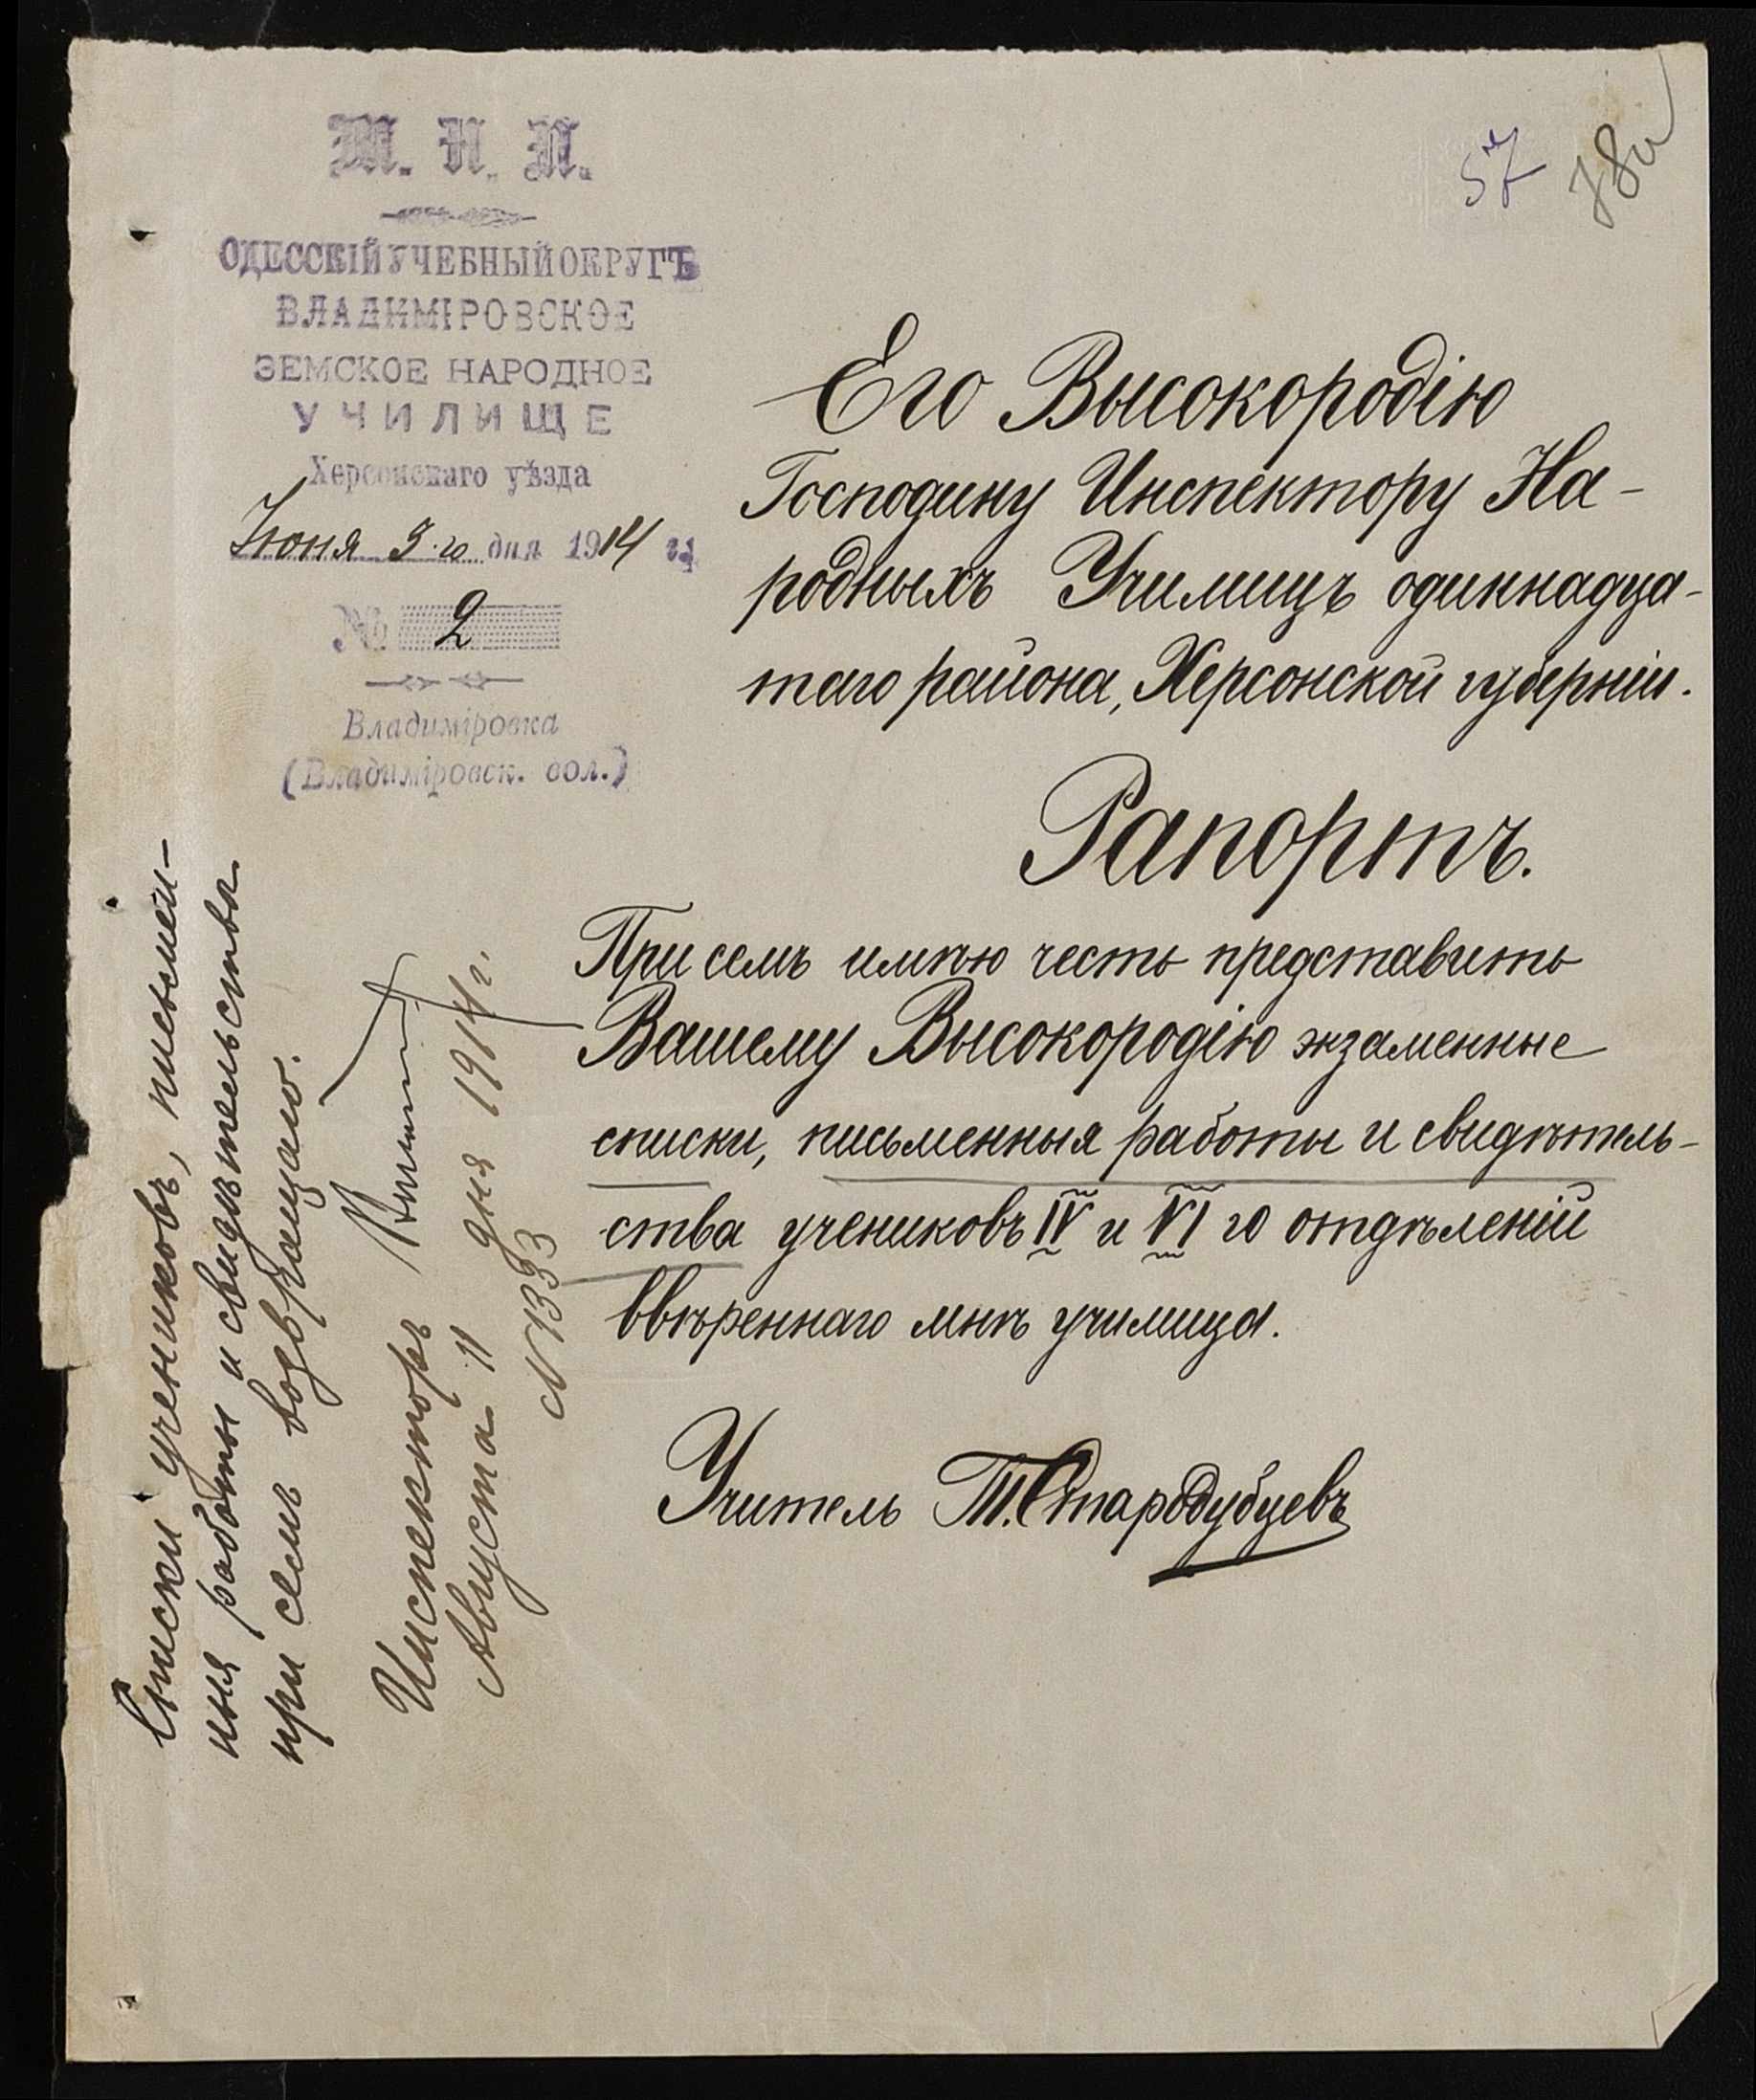 М. Н. П.
ОДЕССКІЙ УЧЕБНЫЙ ОКРУГЪ
ВЛАДИМІРОВСКОЕ
ЗЕМСКОЕ НАРОДНОЕ
УЧИЛИЩЕ
Херсонскаго уѣзда
Іюня 3-го дня 1914 г.
№ 2
Владиміровка
(Владиміровск. вол.)
57
78
Его Высокородію
Господину Инспектору На-
родныхъ Училищъ одиннадца-
таго района, Херсонской губерніи.
Рапортъ.
При семъ имѣю честь представить
Вашему Высокородію экзаменные
списки, письменныя работы и свидѣтель-
ства учениковъ IV и VI го отдѣленій
ввѣреннаго мнѣ училища.
Учитель Т. Стародубцевъ
Списки учениковъ, письмен-
ныя работы и свидѣтельства
при семъ возвращаю.
Инспекторъ
Августа 11 дня 1914 г.
№ 1333